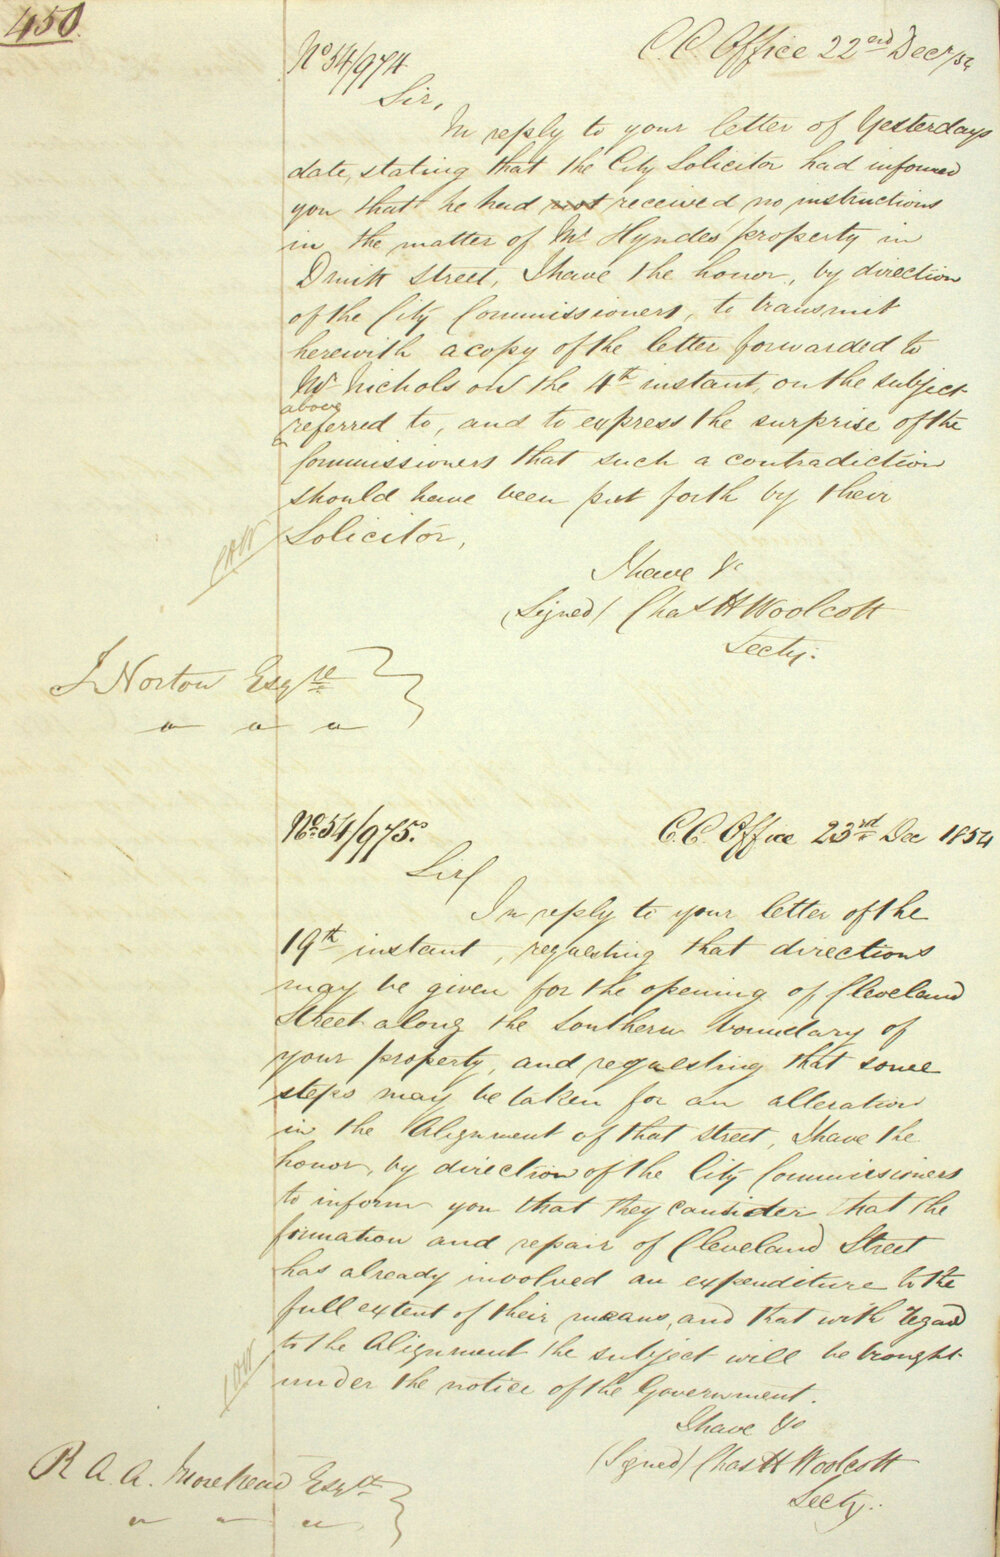 450.
No 54/974
C. C. Office 22nd Decr/54
Sir,
In reply to your letter of Yesterdays
date, stating that the City Solicitor had informed
you that he had not received no instructions
in the matter of Mr Hyndes property in
Druitt Street, I have the honor, by direction
of the City Commissioners, to transmit
herewith a copy of the letter forwarded to
Mr Nichols on the 4th instant, on the subject
above
referred to, and to express the surprise of the
Commissioners that such a contradiction
should have been put forth by their
Solicitor,
I have &c
(Signed) Chas H Woolcott
Secty.
J Norton Esqre
No. 54/975.
C. C. Office 23rd Dec 1854
Sir/
In reply to your letter of the
19th instant, requesting that directions
may be given for the opening of Cleveland
Street along the Southern boundary of
your property, and requesting that some
steps may be taken for an alteration
in the Alignment of that street, I have the
honor, by direction of the City Commissioners
to inform you that they consider that the
formation and repair of Cleveland Street
has already involved an expenditure to the
full extent of their means, and that with regard
to the Alignment the subject will be brought
under the notice of the Government.
I have &c
(Signed) Chas H Woolcott
Secty.
R. A. A. Morehead Esqre